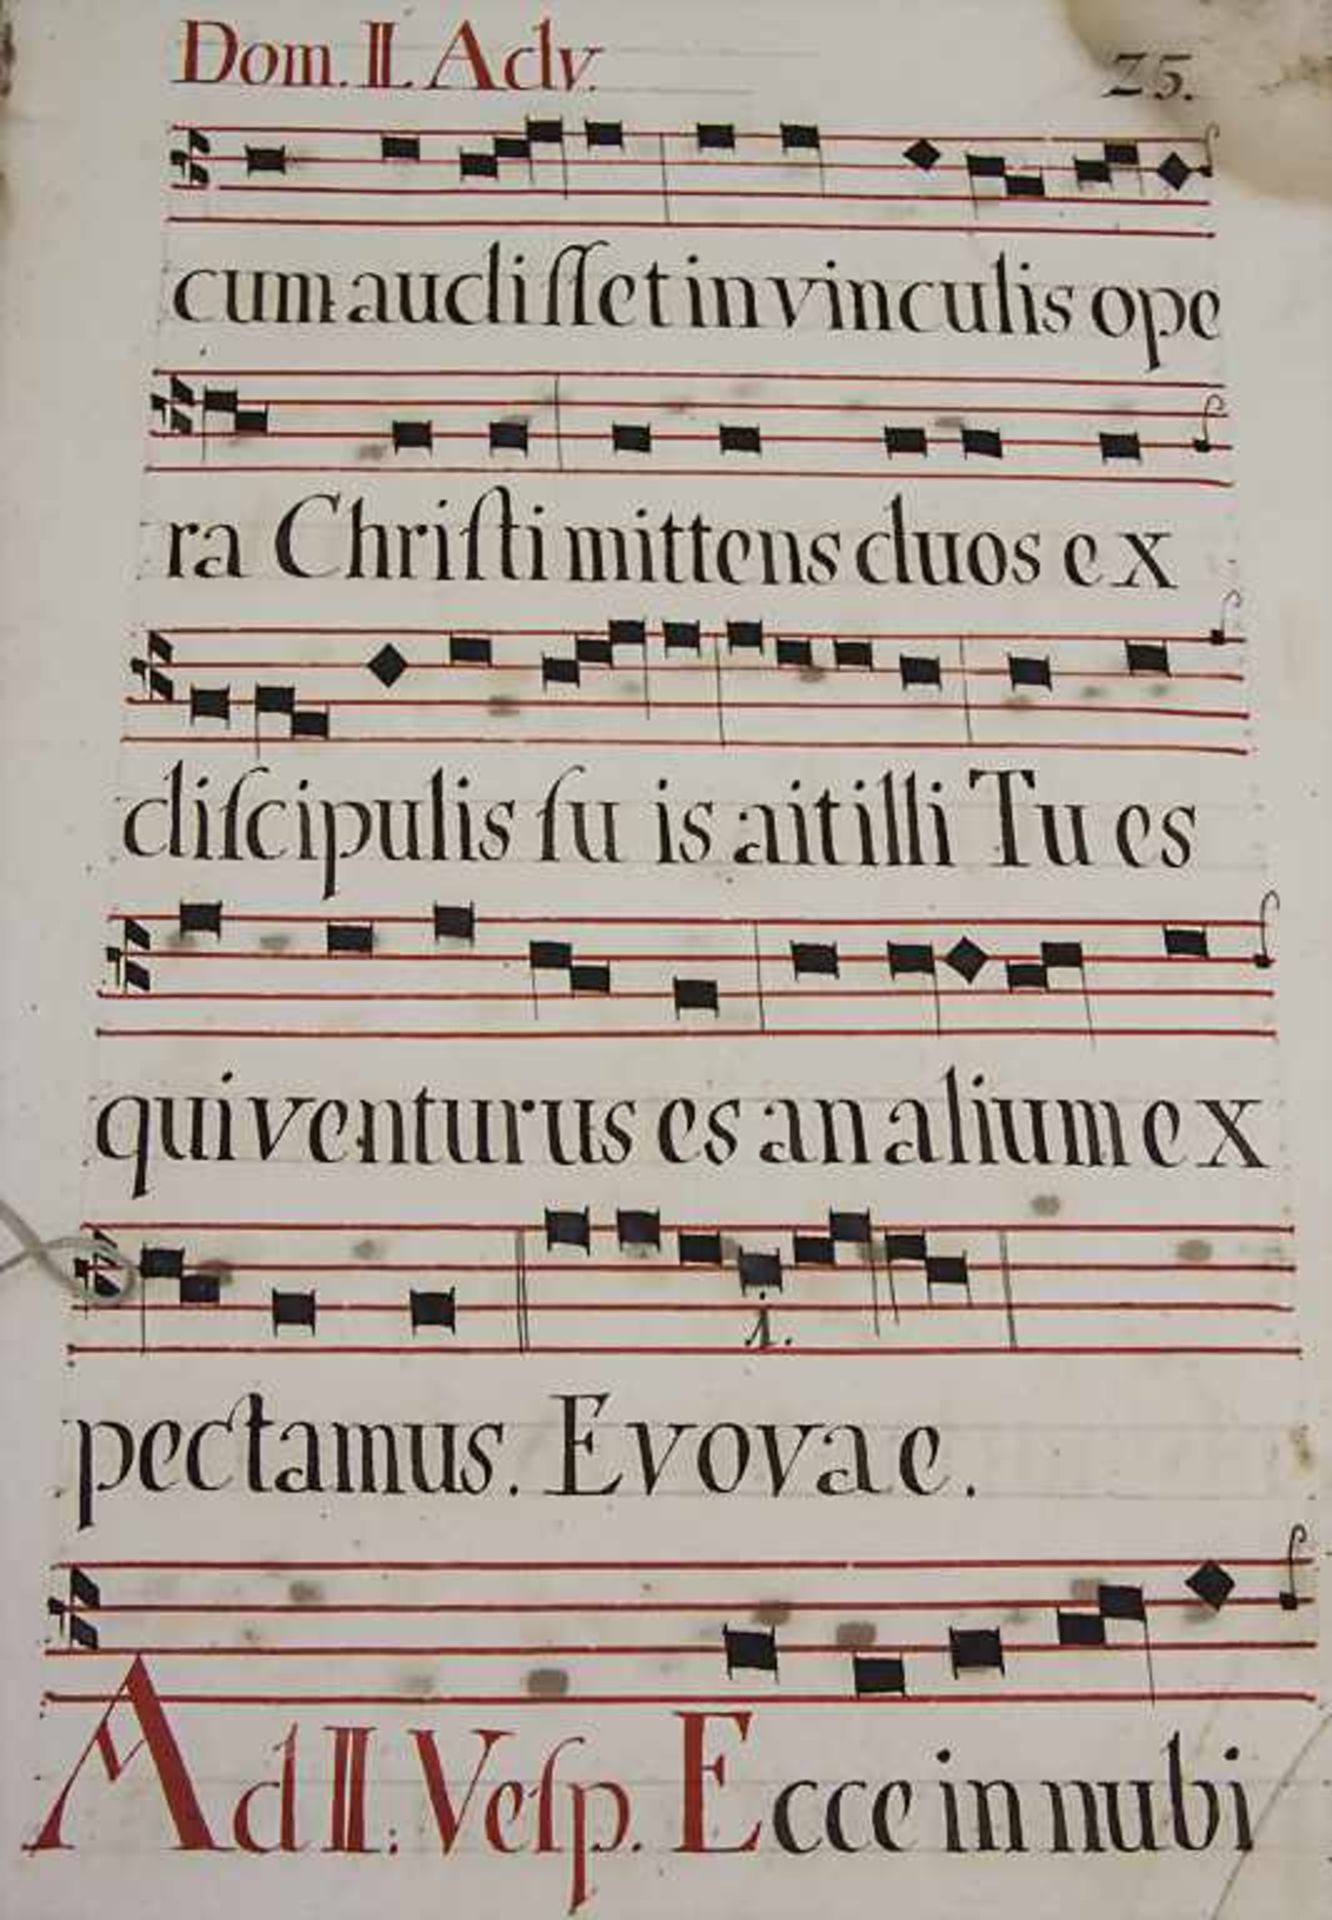 Dom. II. Adv. 25.
cum audiſſet in vinculis ope
ra Chriſti mittens duos ex
diſcipulis ſu is ait illi Tu es
qui venturus es an alium ex
1.
pectamus. Evovae.
Ad II. Veſp. Ecce in nubi